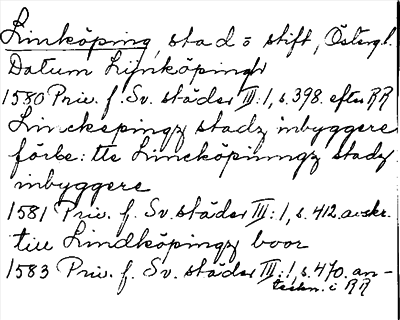 Linköping, stad o stift, Östergl.
Datum Lijnköpingh
1580 Priv. f. Sv. städer III:1, s. 398. efter RR
Linckepingz stadz inbyggere
förbe:tte Linckópinngz stadz
inbyggere
1581 Priv. f. Sv. städer III:1, s. 412. avskr.
till Lindköpingz boor
1583 Priv. f. Sv. städer III:1, s. 470. an-
teckn. i RR